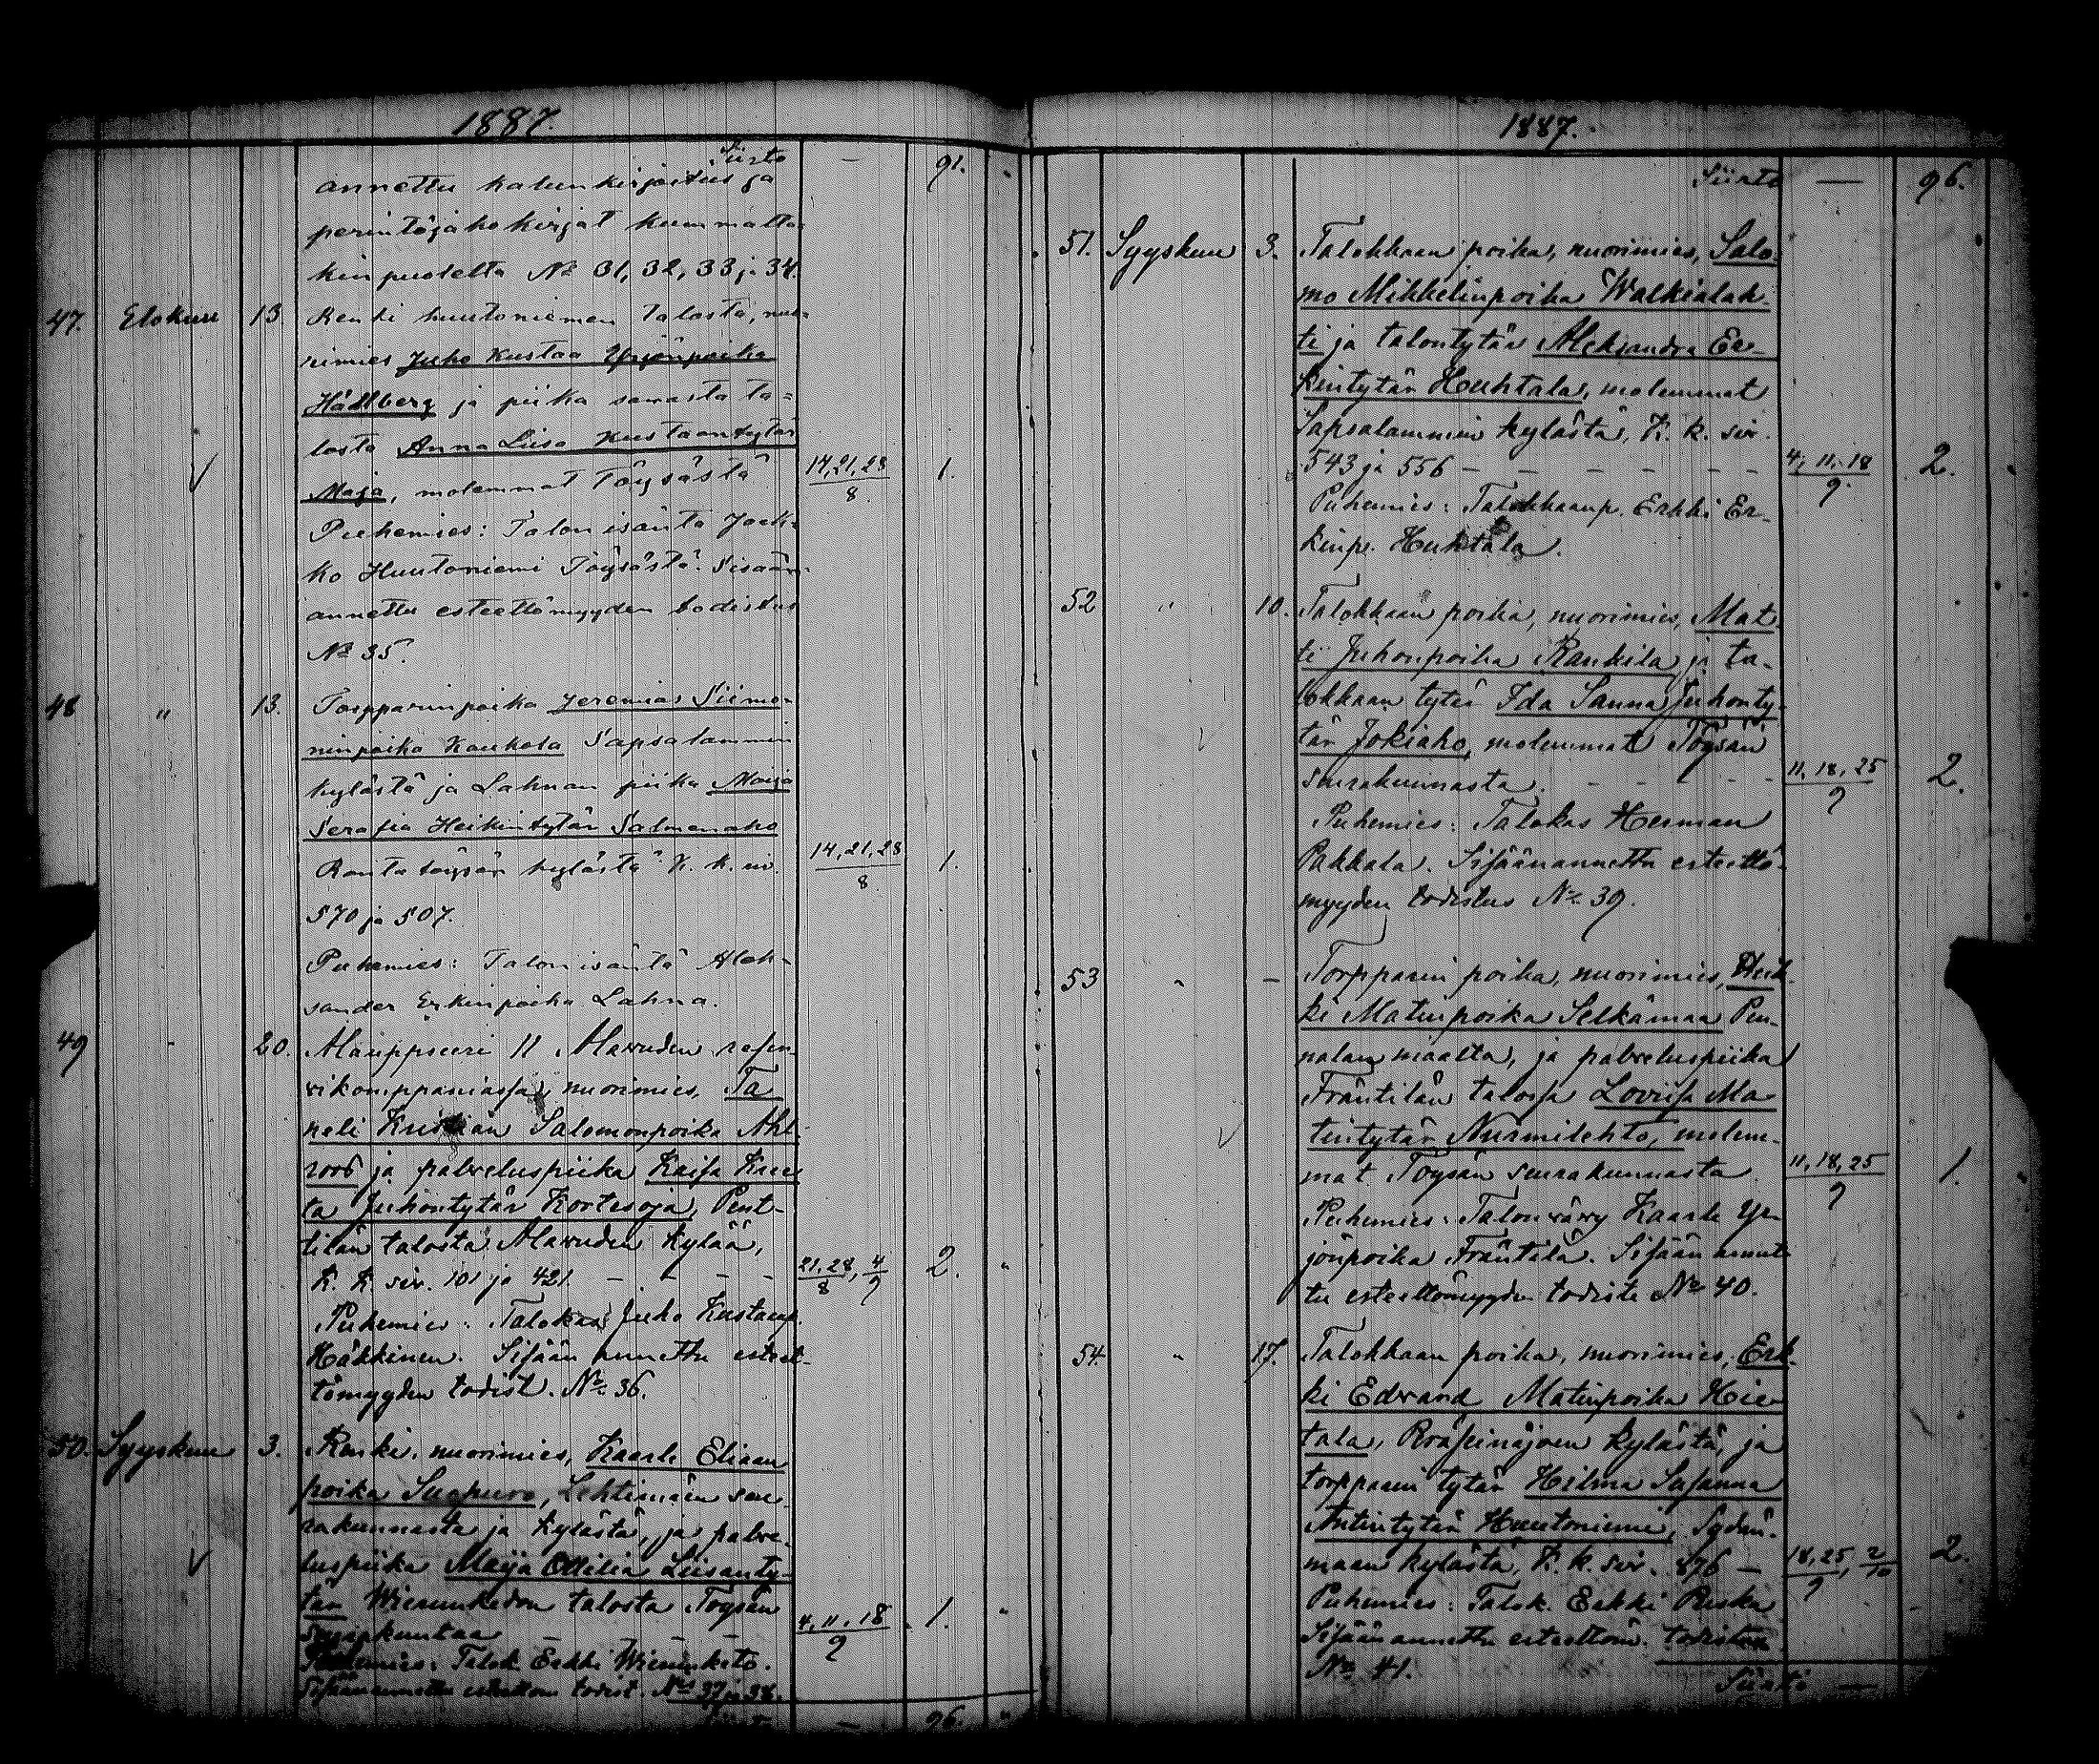 1887.
Siirto — 91.
annettu kalunkirjoitus ja
perintöjakokirjat kummalta-
kin puolelta № 31, 32, 33 ja 34.
47. Elokuu 13. Renki huutoniemen talosta, nuo-
rimies Juho Kustaa Yrjönpoika
Hällberg ja piika samasta ta-
losta Anna Liisa Kustaantytär
Maja, molemmat Töysästä 14, 21, 28/8. 1.
Puhemies: Talon isäntä Jaak-
ko Huutoniemi Töysästä. Sisään-
annettu esteettömyyden todistus
№ 35.
48 " 13. Torpparinpoika Jeremias Siimo-
ninpoika Kaukola Sapsalammin
kylästä ja Lahnan piika Maija
Serafia Heikintytär Salmenaho
Rantatöysän kylästä K. k. siv. 14, 21, 28/8. 1.
570 ja 507.
Puhemies: Talon isäntä Alek-
sander Erkinpoika Lahna.
49 - 20. Aliuppseeri 11 Alavuden reser-
vikomppaniassa, nuorimies, Ta-
neli Kristian Salomonpoika Ahl-
roos ja palveluspiika Kaisa Kreeta
Juhontytär Kortesoja, Pent-
tilän talosta Alavuden kylää,
K. K. siv. 101 ja 421. — — — — 21, 28/8, 4/9 2. "
Puhemies: Talokas Juho Kustaap.
Häkkinen. Sisään annettu esteet-
tömyyden todist. № 36.
50. Syyskuu 3. Renki, nuorimies, Kaarle Eliaan
poika Suopuro, Lehtimäen seu-
rakunnasta ja kylästä, ja palve-
luspiika Maija Ottilia Liisanty-
tär Wiemunkedon talosta Töysän
seurakuntaa — — — 4, 11, 18/9 1. "
Puhemies: Talok. Erkki Wiemunketo.
Sisäänannettu esteettöm. todist. №s 37 ja 38.
— 96. "
1887.
Siirto — 96.
51. Syyskuu 3. Talokkaan poika, nuorimies, Salo-
mo Mikkelinpoika Walkialah-
ti ja talontytär Aleksandra Er-
kintytär Huhtala, molemmat
Sapsalammin kylästä, K. k. siv.
543 ja 556 — — — — — — 4, 11, 18/9. 2. "
Puhemies: Talokkaanp. Erkki Er-
kinp. Huhtala.
52 " 10. Talokkaan poika, nuorimies, Mat-
ti Juhonpoika Rankila ja ta-
lokkaan tytär Ida Sanna Juhonty-
tär Jokiaho, molemmat Töysän
seurakunnasta. — — — — 11, 18, 25/9 2.
Puhemies: Talokas Herman
Pakkala. Sisäänannettu esteettö-
myyden todistus № 39.
53 " — Torpparin poika, nuorimies, Heik-
ki Matinpoika Selkämaa Pen-
nalan maalta, ja palveluspiika
Fräntilän talossa Lovisa Ma-
tintytär Nurmilehto, molem-
mat Töysän seurakunnasta 11, 18, 25/9 1.
Puhemies: Talonvävy Kaarle Yr-
jönpoika Fräntilä. Sisään annet-
tu esteettömyyden todiste № 40.
54. " 17. Talokkaan poika, nuorimies, Erk-
ki Edvard Matinpoika Hie-
tala, Rväsinäjoen kylästä, ja
torpparin tytär Hilma Susanna
Antintytär Huutoniemi, Sydän-
maan kylästä, K. k. siv. 876 — 18, 25/9, 2/10 2.
Puhemies: Talok. Erkki Ruska
Sisäänannettu esteettöm. todistus
№ 41.
Siirto —